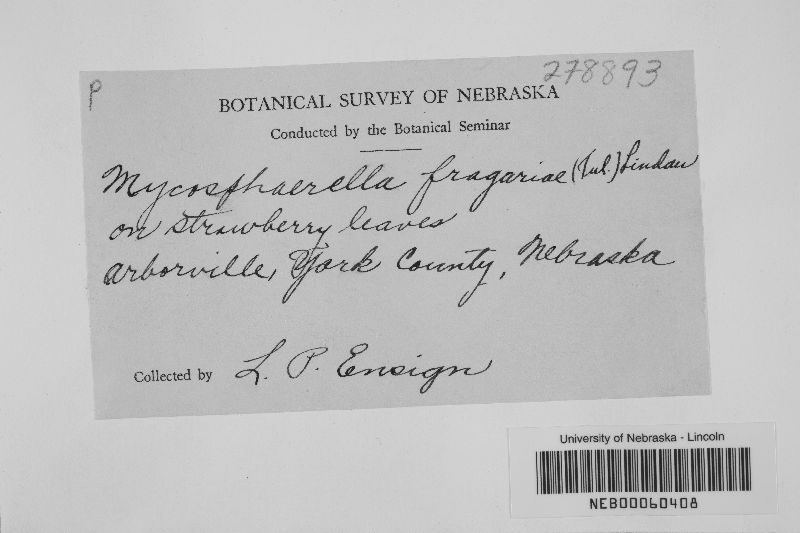 P
278893
BOTANICAL SURVEY OF NEBRASKA
Conducted by the Botanical Seminar
Mycosphaerella fragariae (Tul.) Lindau
on strawberry leaves
Arborville, York County, Nebraska
Collected by L. P. Ensign
University of Nebraska - Lincoln
NEB00060408